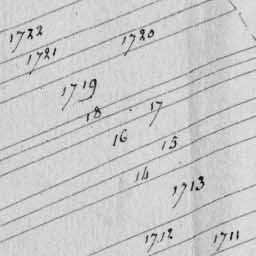 1722
1721
1720
1719
18
17
16
15
14
1713
1712
1711